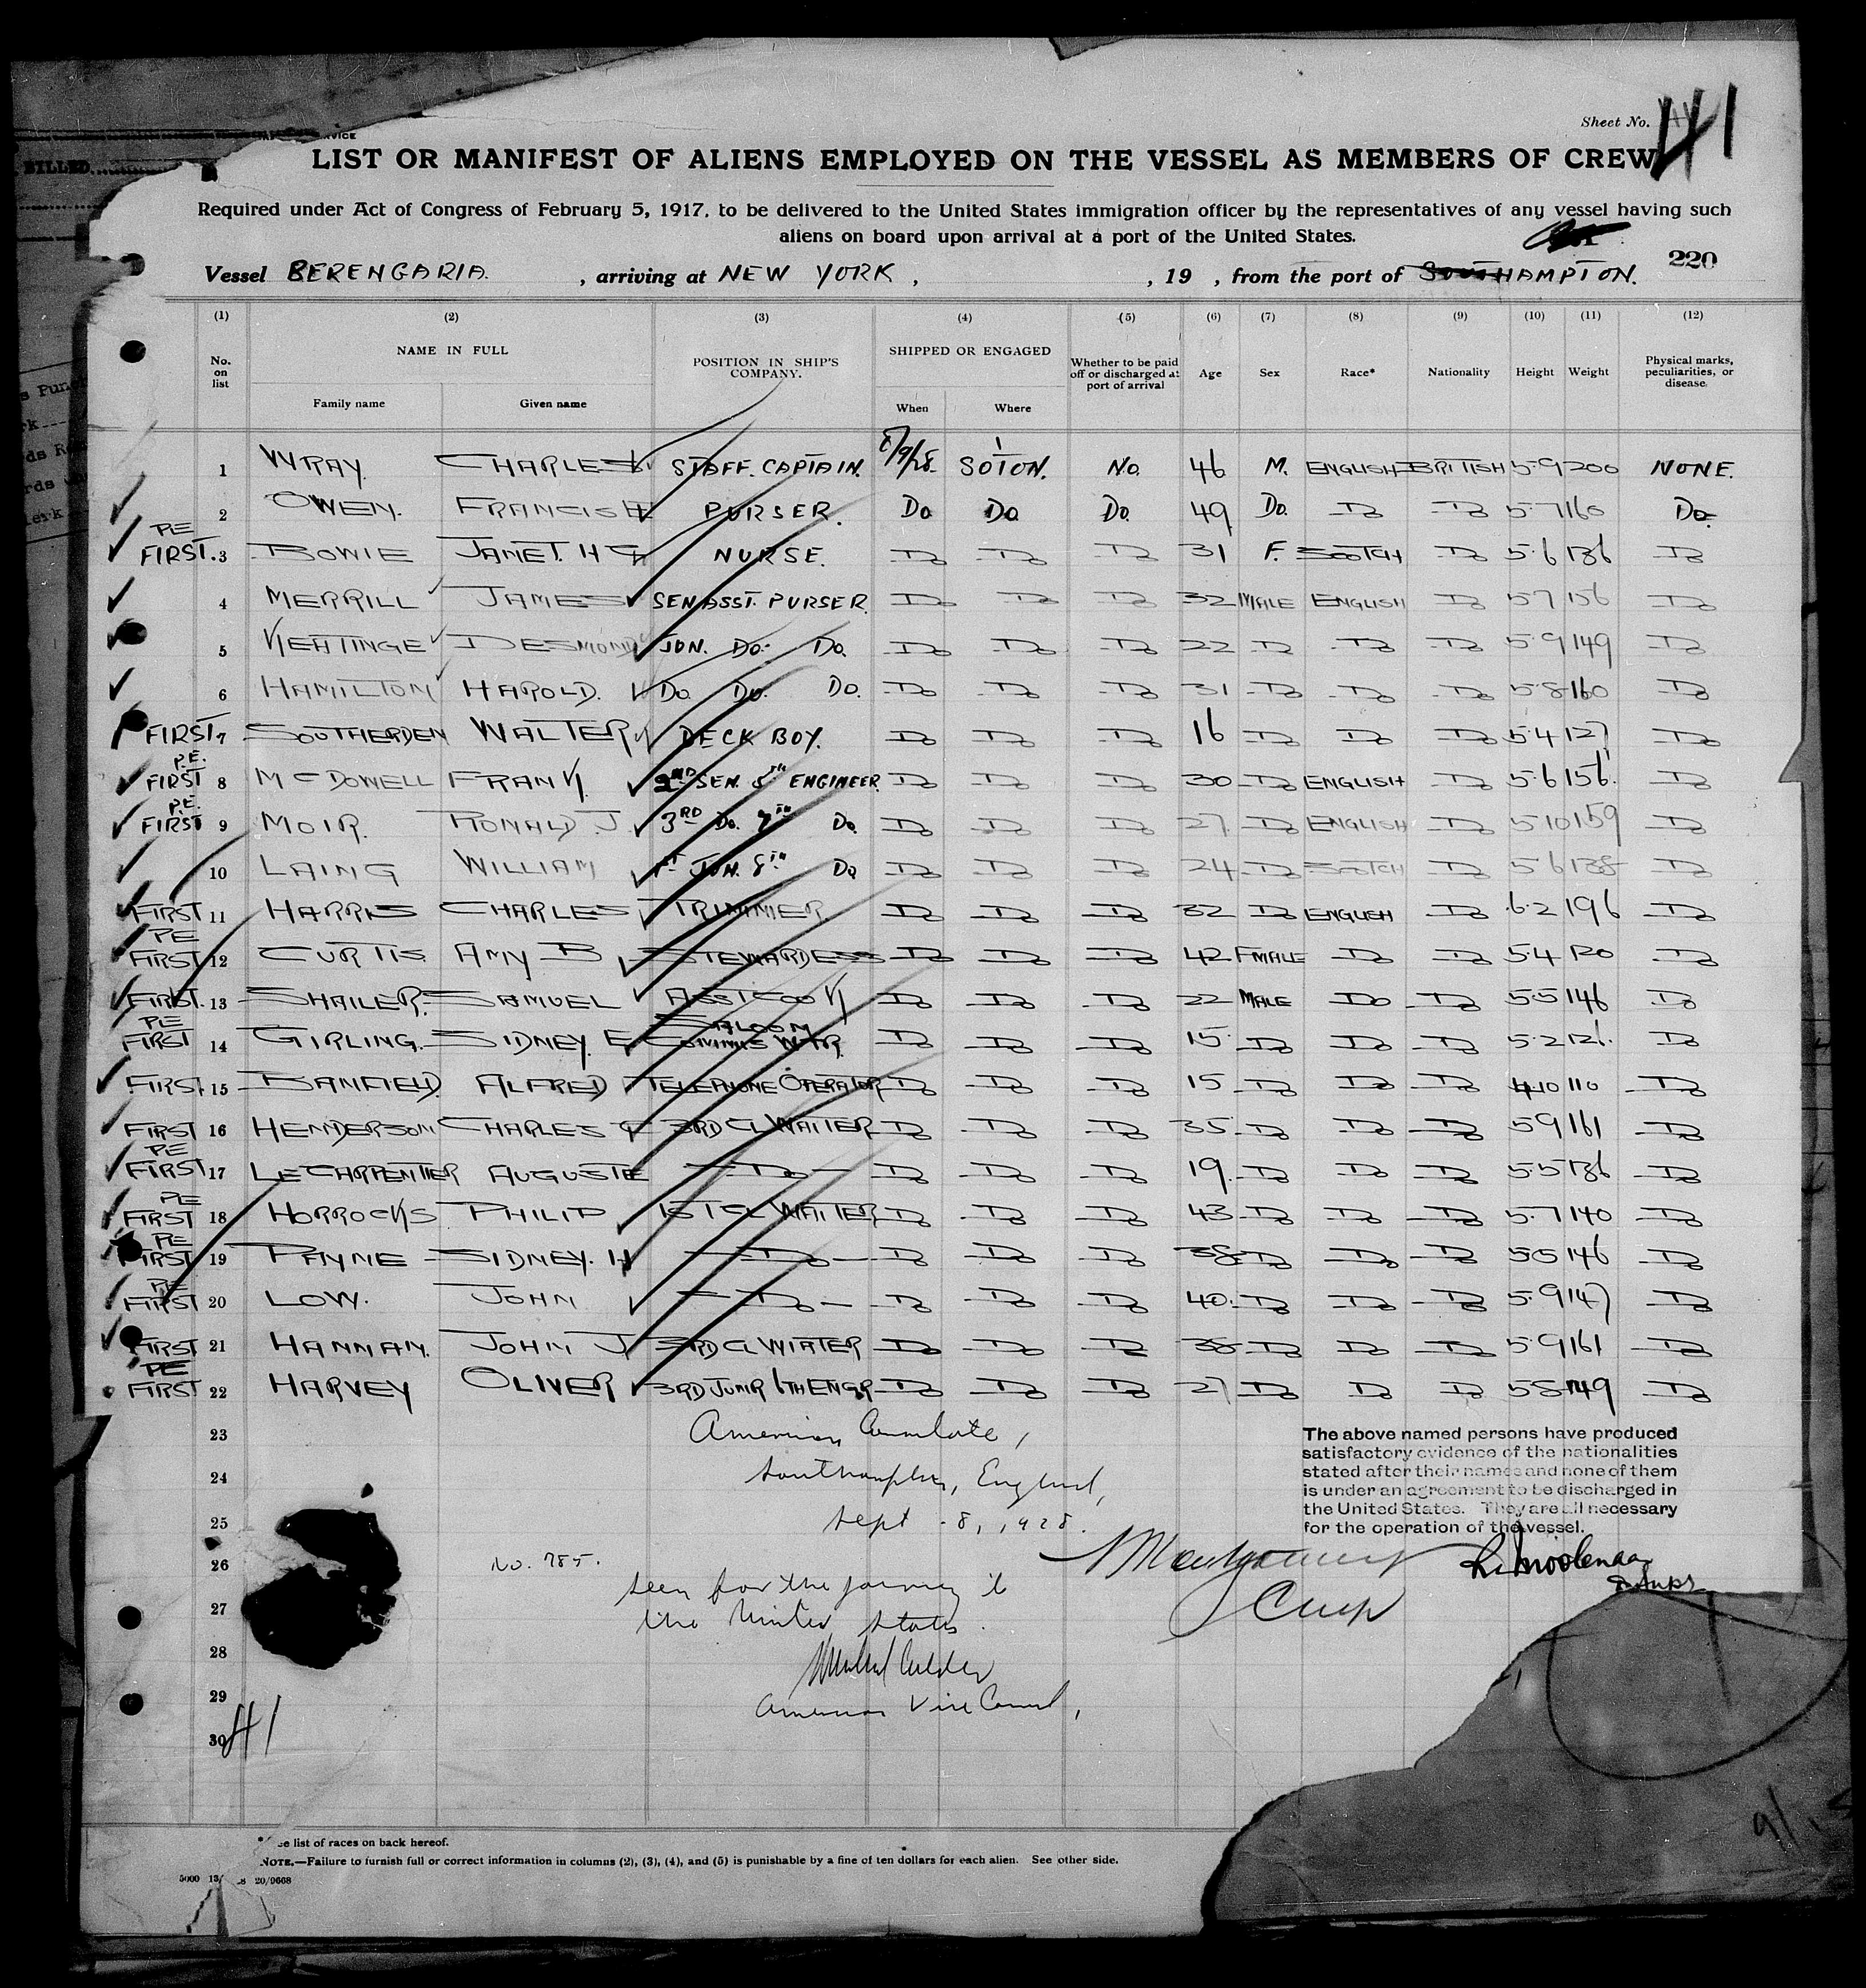 Sheet No. 41
LIST OR MANIFEST OF ALIENS EMPLOYED ON THE VESSEL AS MEMBERS OF CREW
Required under Act of Congress of February 5, 1917, to be delivered to the United States immigration officer by the representatives of any vessel having such
aliens on board upon arrival at a port of the United States.
220
Vessel BERENGARIA , arriving at NEW YORK , , 19 , from the port of SOUTHAMPTON.
(1) (2) (3) (4) (5) (6) (7) (8) (9) (10) (11) (12)
No. on list NAME IN FULL Family name Given name POSITION IN SHIP'S COMPANY. SHIPPED OR ENGAGED When Where Whether to be paid off or discharged at port of arrival Age Sex Race* Nationality Height Weight Physical marks, peculiarities, or disease.
1 WRAY. CHARLES STAFF. CAPTAIN. 7/9/28 SOTON. No. 46 M. ENGLISH BRITISH 5-9 200 NONE.
2 OWEN. FRANCIS H PURSER. Do Do Do. 49 Do. Do Do 5-7 160 Do.
PE FIRST. 3 BOWIE JANET. H G NURSE. Do Do Do 31 F. SCOTCH Do 5-6 136 Do
4 MERRILL JAMES SEN ASST. PURSER. Do Do Do 32 MALE ENGLISH Do 5-7 156 Do
5 KEATINGE DESMOND JUN. Do. Do. Do Do Do 22 Do Do Do 5-9 149 Do
6 HAMILTON HAROLD. Do Do. Do. Do Do Do 31 Do Do Do 5-8 160 Do
FIRST 7 SOUTHERDEN WALTER DECK BOY. Do Do Do 16 Do Do Do 5-4 127 Do
P.E. FIRST 8 McDOWELL FRANK. 2ND SEN. 5TH ENGINEER Do Do Do 30 Do ENGLISH Do 5-6 156 Do
P.E. FIRST 9 MOIR. RONALD J. 3RD Do. 7TH Do. Do Do Do 27 Do ENGLISH Do 5-10 159 Do
10 LAING WILLIAM 1ST JUN. 8TH Do Do Do Do 24 Do SCOTCH Do 5-6 138 Do
FIRST 11 HARRIS CHARLES TRIMMER. Do Do Do 32 Do ENGLISH Do 6-2 196 Do
PE FIRST 12 CURTIS AMY B STEWARDESS Do Do Do 42 FMALE Do Do 5-4 120 Do
FIRST. 13 SHAILER. SAMUEL ASST COOK Do Do Do 22 MALE Do Do 5-5 146 Do
PE FIRST 14 GIRLING. SIDNEY. E. SALOON COMMIS WTR. Do Do Do 15 Do Do Do 5-2 126. Do
FIRST 15 BANFIELD. ALFRED TELEPHONE OPERATOR Do Do Do 15 Do Do Do 4-10 110 Do
FIRST 16 HENDERSON CHARLES 3RD CL WAITER Do Do Do 35 Do Do Do 5-9 161 Do
PE FIRST 17 LECHARPENTIER AUGUSTE Do Do Do Do 19. Do Do Do 5-5 136 Do
PE FIRST 18 HORROCKS PHILIP 1ST CL WAITER Do Do Do 43 Do Do Do 5-7 140 Do
PE FIRST 19 PAYNE SIDNEY. H Do Do Do Do 38 Do Do Do 5-5 146 Do
PE FIRST 20 LOW. JOHN Do Do Do Do 40. Do Do Do 5-9 147 Do
FIRST 21 HANNAN. JOHN J 3RD CL WAITER Do Do Do 38 Do Do Do 5-9 161 Do
PE FIRST 22 HARVEY OLIVER 3RD JUNR 6TH ENGR Do Do Do 27 Do Do Do 5-8 149 Do
23 American Consulate,
24 Southampton, England,
25 Sept - 8, 1928.
The above named persons have produced
satisfactory evidence of the nationalities
stated after their names and none of them
is under an agreement to be discharged in
the United States. They are all necessary
for the operation of the vessel.
26 No. 785.
Seen for the journey to
27 the United States.
28
29 American Vice Consul,
30 41
list of races on back hereof.
NOTE.—Failure to furnish full or correct information in columns (2), (3), (4), and (5) is punishable by a fine of ten dollars for each alien. See other side.
5000 20/9668